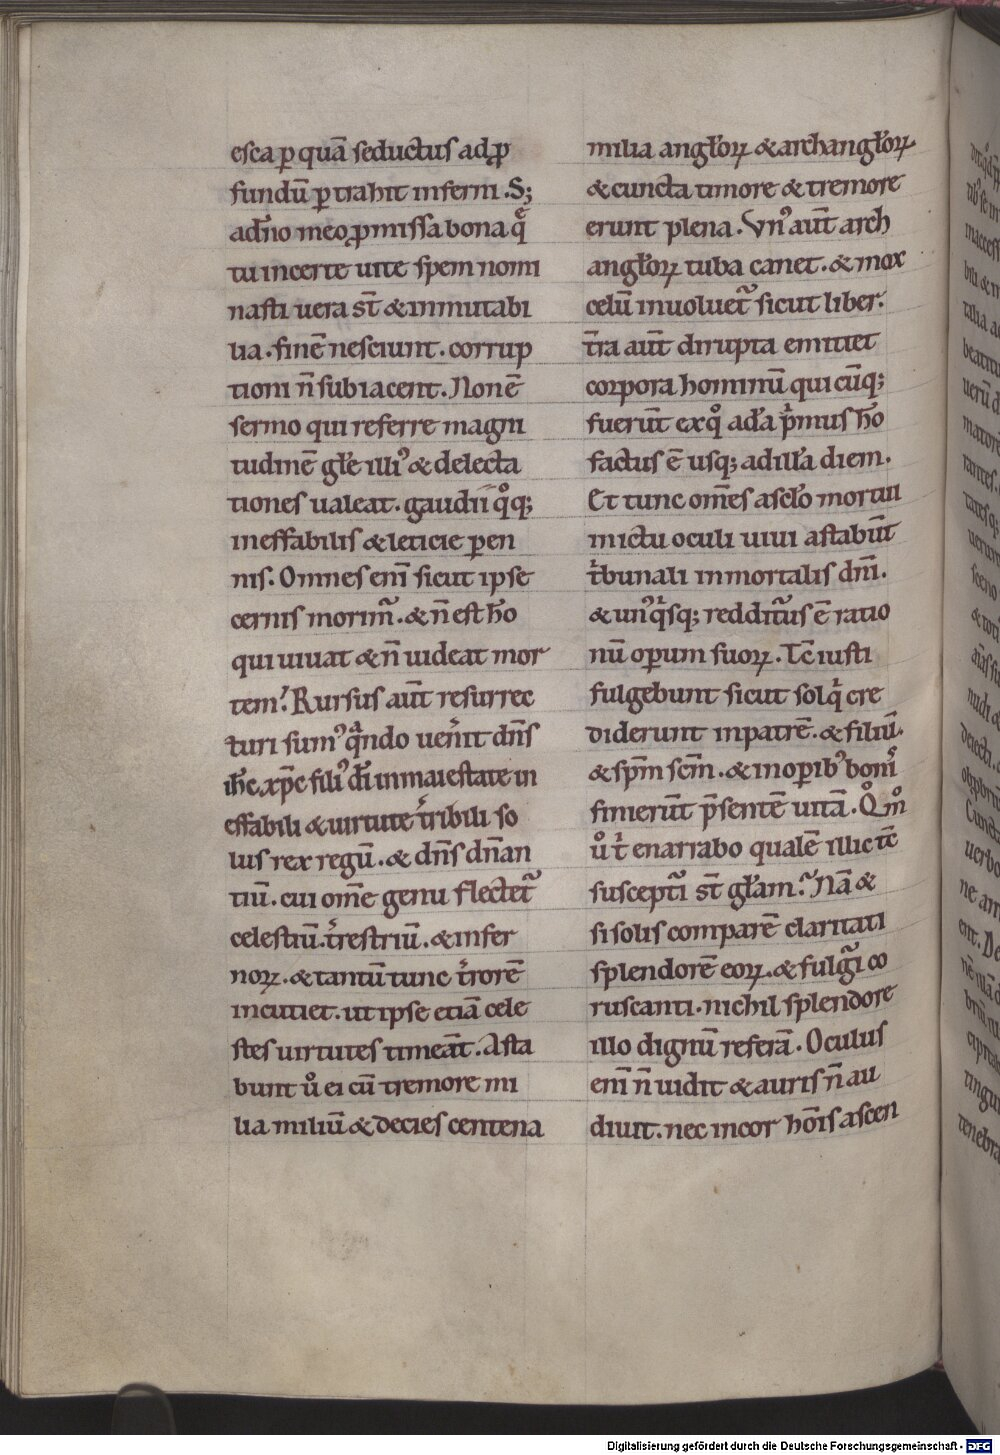 esca p quā seductus ad ꝓ
fundū ptrahit inferni. S;
a dn̄o meo ꝓmissa bona q̄
tu incerte uite spem nomi
nasti uera st̄ & inmutabi
lia. finē nesciunt. corrup
tioni n̄ subiacent. Non ē
sermo qui referre magni
tudinē gl̄e illiꝰ & delecta
tiones ualeat. gaudii q̊q;
ineffabilis & leticie pen
nis. Omnes enī sicut ipse
cernis morim̄. & n̄ est hō
qui uiuat & n̄ uideat mor
tem. Rursus aūt resurrec
turi sumꝰ q̄ndo uen̄it dn̄s
ih̄c xp̄c filiꝰ dī in maiestate in
effabili & uirtute t̄ribili so
lus rex regū. & dn̄s dn̄an
tiū. cui om̄e genu flectet̄
celestiū. t̄restriū. & infer
noꝝ. & tantū tunc t̄rorē
incutiet. ut ipse etiā cele
stes uirtutes timeāt. Asta
bunt ů ei cū tremore mi
lia miliū & decies centena
milia angl̄oꝝ & archangl̄oꝝ
& cuncta timore & tremore
erunt plena. Vnꝰ aūt arch
angl̄oꝝ tuba canet. & mox
celū inuoluet̄ sicut liber.
t̄ra aūt dirupta emittet
corpora hominū qui cūq;
fuerūt ex q̊ adā p̄mus hō
factus ē usq; ad illā diem.
Et tunc om̄es a sclo mortui
in ictu oculi uiui astabūt
t̄bunali inmortalis dn̄i.
& unꝰq̄sq; redditūs ē ratio
nū operum suoꝝ. Tc̄ iusti
fulgebunt sicut sol q̄ cre
diderunt in patrē. & filiū.
& sp̄m sc̄m. & in opibꝰ boniˢ
finierūt p̄sentē uitā. Q̊m̊
ů t̄ enarrabo qualē illic tē
suscepti st̄ gl̄am. Nā &
si solis comparē claritati
splendorē eoꝝ. & fulḡi co
ruscanti. nichil splendore
illo dignū referā. Oculus
enī n̄ uidit & auris n̄ au
diuit. nec in cor hōis ascen